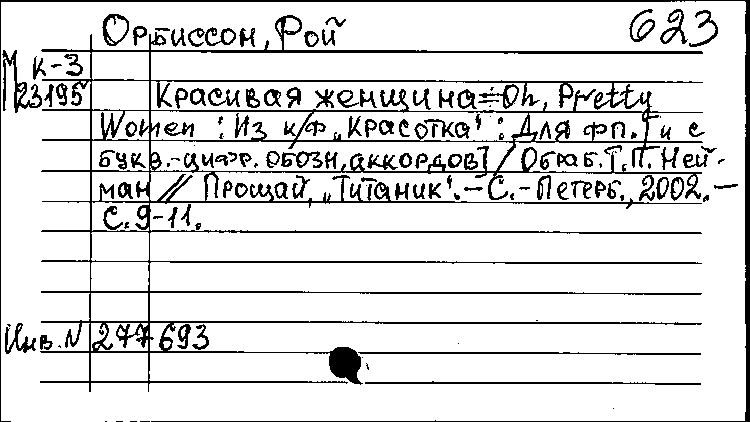 Орбиссон, Рой 623
М К-3
23195 Красивая женщина = Oh, Pretty
Women : Из к/ф „Красотка“ : Для фп. [и с
букв.-цифр. обозн. аккордов] / Обраб. Т.П. Ней-
ман // Прощай, „Титаник“. – С.-Петерб., 2002. –
С. 9-11.
Инв. N 277693